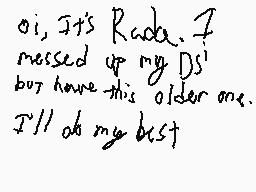 oi, It's Rada. I
messed up my DSi
but have this older one.
I'll do my best